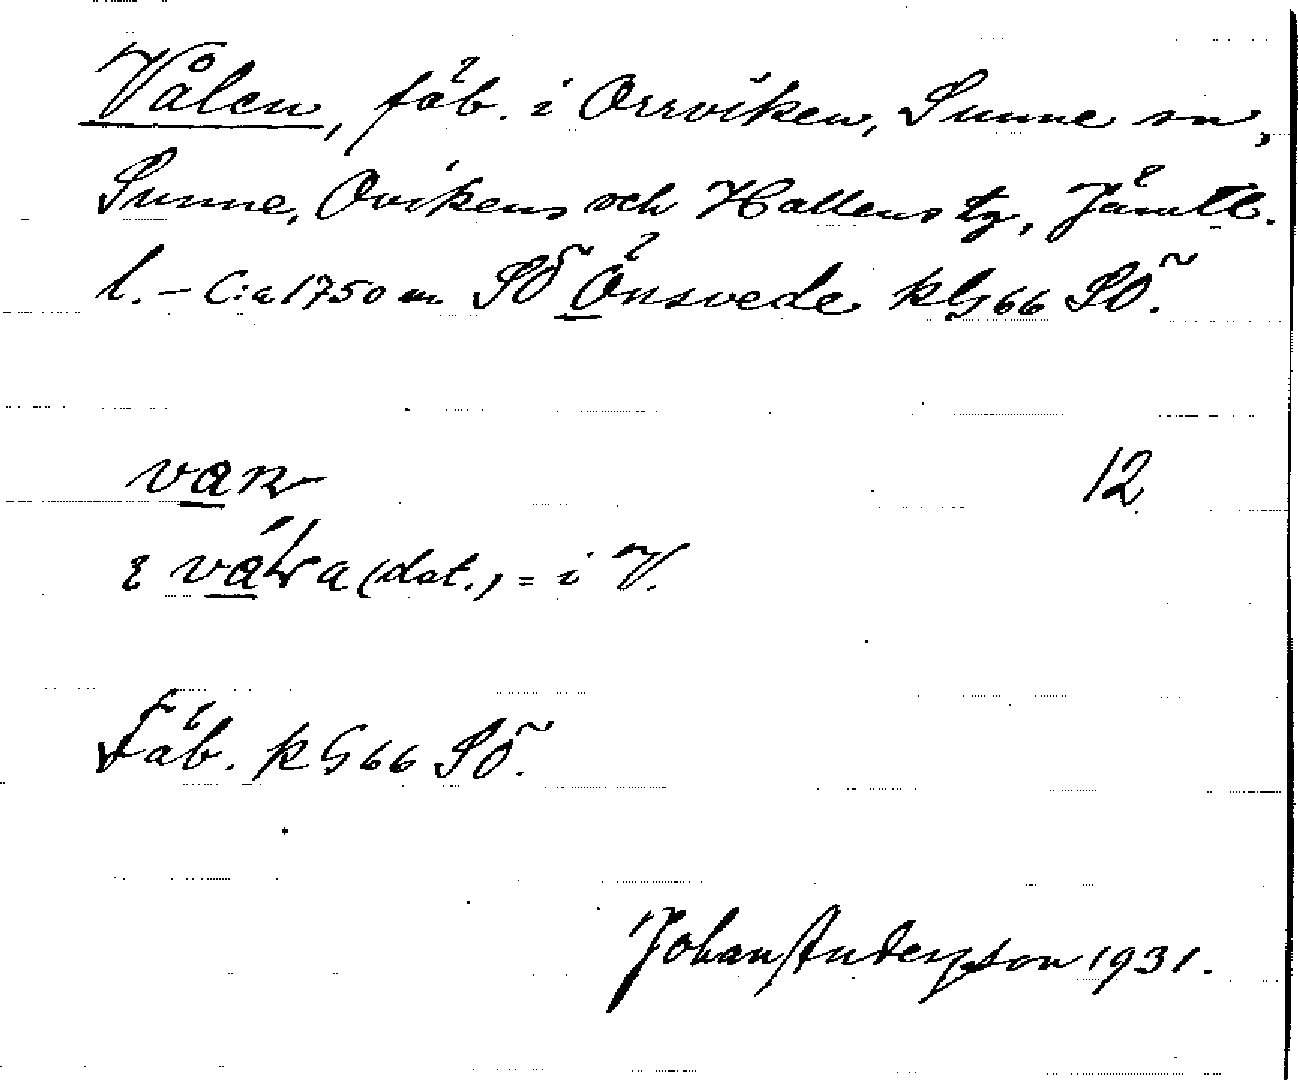 Vålen, fäb. i Orrviken, Sunne sn,
Sunne, Ovikens och Hallens tg, Jämtl.
l. – C:a 1750 m SÖ Önsvede kG66 SÖ.
12
(dat.) = i V.
Fäb. kG66 SÖ.
Johan Andersson 1931.